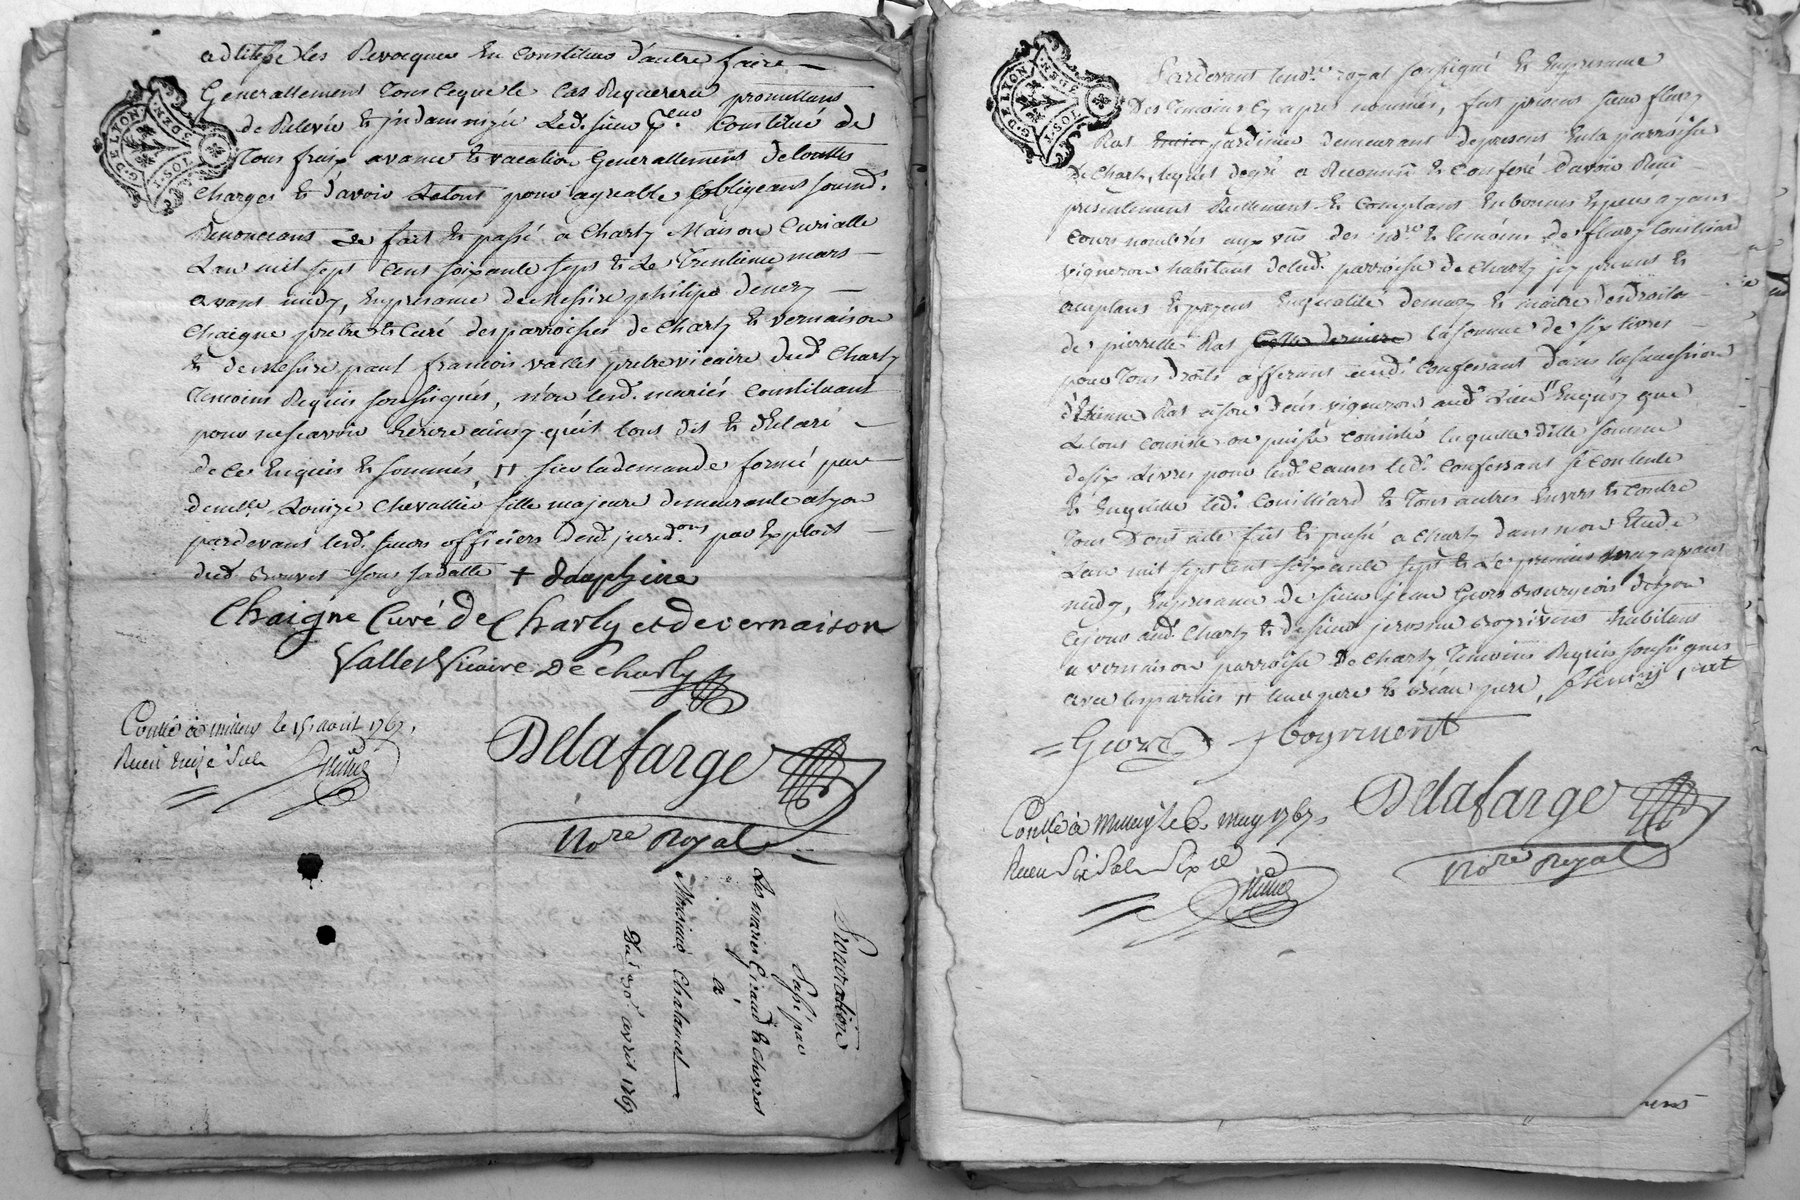 les Revoequer En Constituer d'autre faire
Generallement tous ceque le Cas Requerera promettant
de Relevér & jndamnizér Led. sieur constitué de
Tous fraix avance & vacation Generallement de touttes
Charges & d'avoir Letout pour agreable obligeant soumd.
Renonceant fait & passé a Charly Maison Curialle
Lan mil sept cent soixante sept & Le Trentieme mars
avant midy, En presance de Messire philipe denez
Chaigne prebre & Curé des parroisses de Charly & vernaison
& de Messire paul francois valles prebre vicaire dud. Charly
Temoins Requis soussignés, non lesd. mariés Constituant
pour ne scavoir Ecrire ainsy qu'ils l'ont dit & declaré
de ce Enquis & sommés, sur la demande formé par
demelle. Louize Chevallier fille majeure demeurante a lyon
pardevant lesd. sieurs officiers dud. jured.ons par Exploit
dud. sous sa datte + dauphine
Chaigne Curé de Charly et de vernaison
Valles Vicaire de Charly
Conllé à millery le 15 avril 1767.
Recu treize sols
Delafarge
Nore Royal
Procuration
Passé par
Les mariés Giraud & Chevrot
a
Monsieur Chalamel
avril 1767
G. DE LYON
1. SOL
Pardevant le no.re royal soussigné & En presance
Des temoins cy apres nommés, fut présent sieur fleury
Ras jardinier demeurant depresent En la parroisse
de Charly, lequel degré a Reconnu & Confessé d'avoir Reçu
presentement Reellement & Comptant En bonnes Especes ayant
cours nombrées aux vüe des no.re & temoins de fleury Couilliard
vigneron habitant delad. parroisse de Charly jcy present &
acceptant & payant En qualité de mary & maitre des droits
de pierrette Ras la somme de six livres
pour tous droits afferant aud. confessant dans la succession
d'Etienne Ras a son deces vigneron aud. lieu En quoy que
Le tout consiste ou puisse consisté laquelle ditte somme
de six Livres pour lesd. causes led. confessant se contente
& En quitte led. Couilliard & Tous autres Envers & contre
Tous Dont acte fait & passé a Charly dans mon Etude
Lan mil sept cent soixante sept & Le premier may avant
midy, En presance de sieur jean Giort Bourgeois de lyon
aud. Charly & de sieur jerosme habitant
a vernaison parroisse de Charly temoins Requis soussignés
avec les parties
Delafarge
Conllé à Millery le 6. may 1767.
Recu Six Sols Six
Nore Royal
G. DE LYON
1. SOL